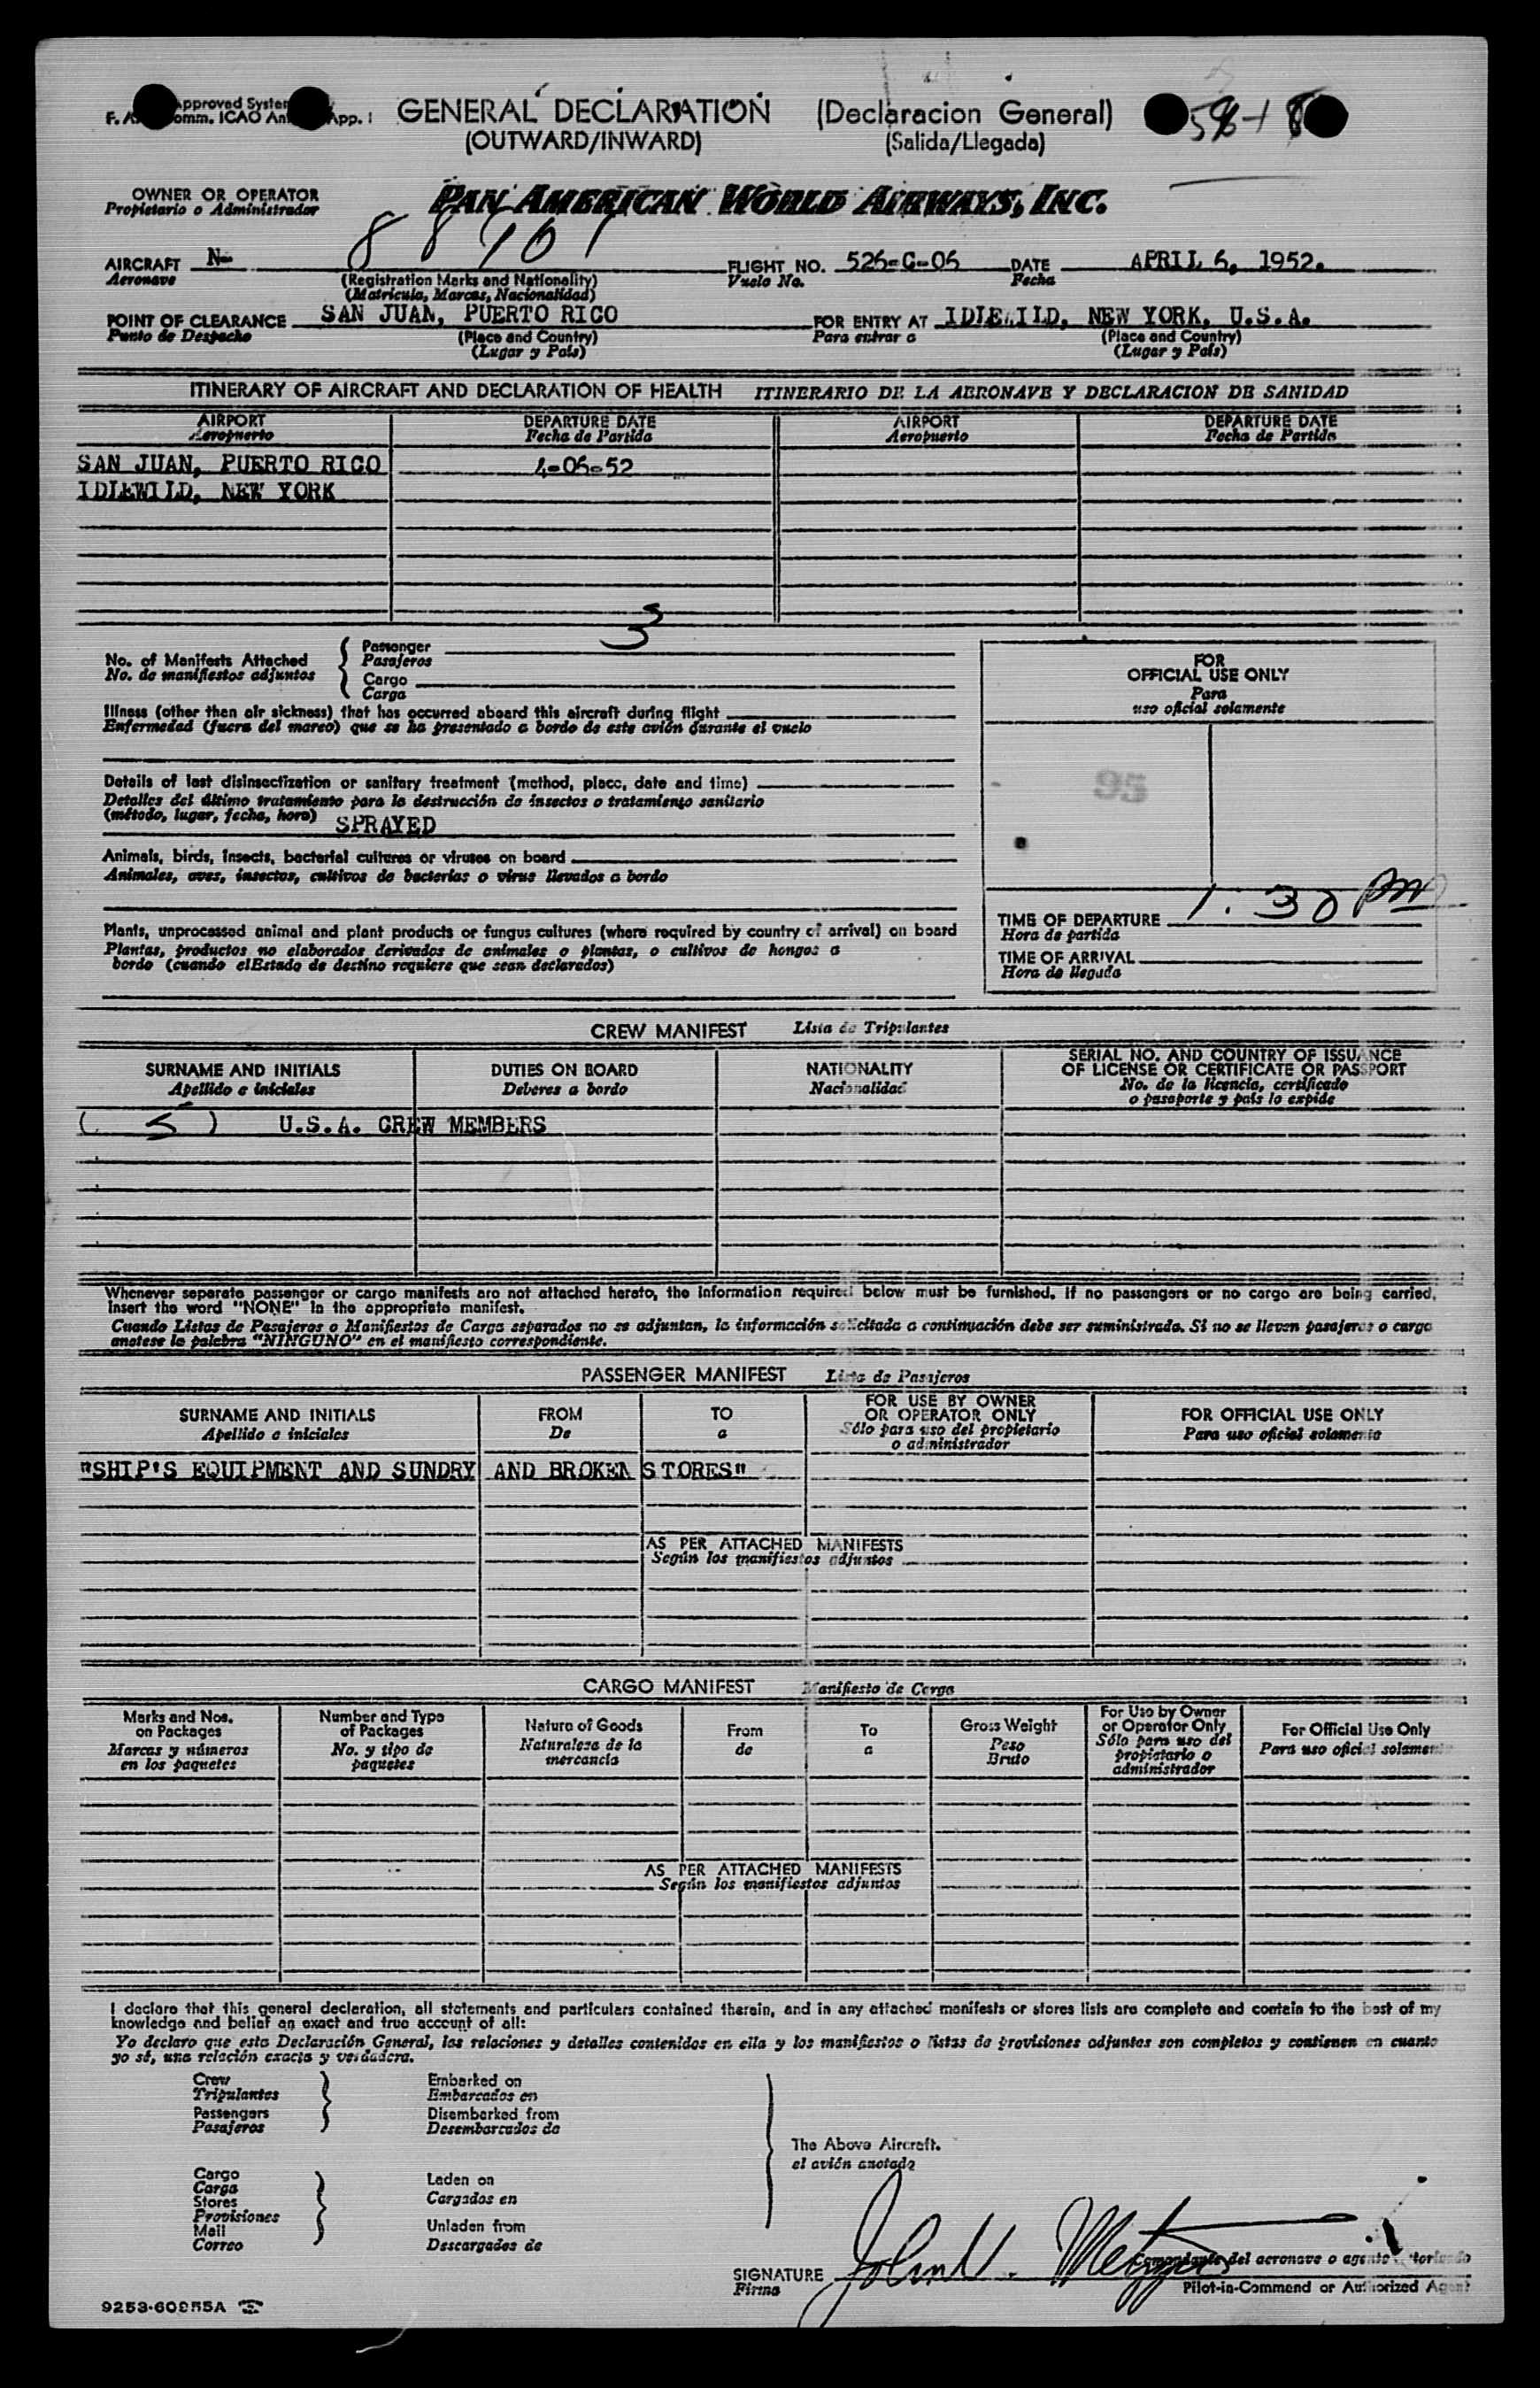 pproved System
F. A. omm. ICAO An App. I
GENERAL DECLARATION (Declaracion General)
(OUTWARD/INWARD) (Salida/Llegada)
OWNER OR OPERATOR PAN AMERICAN WORLD AIRWAYS, INC.
Propietario o Administrador
AIRCRAFT N- FLIGHT NO. 526-C-06 DATE APRIL 6, 1952.
Aeronave (Registration Marks and Nationality) Vuelo No. Fecha
(Matricula, Marcas, Nacionalidad)
POINT OF CLEARANCE SAN JUAN, PUERTO RICO FOR ENTRY AT IDLEWILD, NEW YORK, U.S.A.
Punto de Despacho (Place and Country) Para entrar a (Place and Country)
(Lugar y País) (Lugar y País)
ITINERARY OF AIRCRAFT AND DECLARATION OF HEALTH ITINERARIO DE LA AERONAVE Y DECLARACION DE SANIDAD
AIRPORT DEPARTURE DATE AIRPORT DEPARTURE DATE
Aeropuerto Fecha de Partida Aeropuerto Fecha de Partida
SAN JUAN, PUERTO RICO 4-06-52
IDLEWILD, NEW YORK
No. of Manifests Attached { Passenger 3
No. de manifiestos adjuntos Pasajeros
Cargo
Carga
Illness (other than air sickness) that has occurred aboard this aircraft during flight
Enfermedad (fuera del mareo) que se ha presentado a bordo de este avión durante el vuelo
Details of last disinsectization or sanitary treatment (method, place, date and time)
Detalles del último tratamiento para la destrucción de insectos o tratamiento sanitario
(método, lugar, fecha, hora) SPRAYED
Animals, birds, insects, bacterial cultures or viruses on board
Animales, aves, insectos, cultivos de bacterias o virus llevados a bordo
Plants, unprocessed animal and plant products or fungus cultures (where required by country of arrival) on board
Plantas, productos no elaborados derivados de animales o plantas, o cultivos de hongos a
bordo (cuando elEstado de destino requiere que sean declarados)
FOR
OFFICIAL USE ONLY
Para
uso oficial solamente
95
TIME OF DEPARTURE 1:30 PM
Hora de partida
TIME OF ARRIVAL
Hora de llegada
CREW MANIFEST Lista de Tripulantes
SURNAME AND INITIALS DUTIES ON BOARD NATIONALITY SERIAL NO. AND COUNTRY OF ISSUANCE
OF LICENSE OR CERTIFICATE OR PASSPORT
Apellido e iniciales Deberes a bordo Nacionalidad No. de la licencia, certificado
o pasaporte y país lo expide
( 5 ) U.S.A. CREW MEMBERS
Whenever separate passenger or cargo manifests are not attached hereto, the information required below must be furnished. If no passengers or no cargo are being carried,
insert the word "NONE" in the appropriate manifest.
Cuando Listas de Pasajeros o Manifiestos de Carga separados no se adjuntan, la información solicitada a continuación debe ser suministrada. Si no se llevan pasajeros o carga
anotese la palabra "NINGUNO" en el manifiesto correspondiente.
PASSENGER MANIFEST Lista de Pasajeros
SURNAME AND INITIALS FROM TO FOR USE BY OWNER
OR OPERATOR ONLY FOR OFFICIAL USE ONLY
Apellido e iniciales De a Sólo para uso del propietario
o administrador Para uso oficial solamente
"SHIP'S EQUIPMENT AND SUNDRY AND BROKEN STORES"
AS PER ATTACHED MANIFESTS
Según los manifiestos adjuntos
CARGO MANIFEST Manifiesto de Carga
Marks and Nos.
on Packages
Marcas y números
en los paquetes
Number and Type
of Packages
No. y tipo de
paquetes
Nature of Goods
Naturaleza de la
mercancía
From
de
To
a
Gross Weight
Peso
Bruto
For Use by Owner
or Operator Only
Sólo para uso del
propietario o
administrador
For Official Use Only
Para uso oficial solamente
AS PER ATTACHED MANIFESTS
Según los manifiestos adjuntos
I declare that this general declaration, all statements and particulars contained therein, and in any attached manifests or stores lists are complete and contain to the best of my
knowledge and belief an exact and true account of all:
Yo declaro que esta Declaración General, las relaciones y detalles contenidos en ella y los manifiestos o listas de provisiones adjuntas son completos y contienen en cuanto
yo sé, una relación exacta y verdadera.
Crew
Tripulantes
Passengers
Pasajeros
Embarked on
Embarcados en
Disembarked from
Desembarcados de
Cargo
Carga
Stores
Provisiones
Mail
Correo
Laden on
Cargados en
Unladen from
Descargados de
The Above Aircraft.
el avión anotado
SIGNATURE
Firma
Comandante del aeronave o agente
Pilot-in-Command or Authorized Agent
9253-60955A